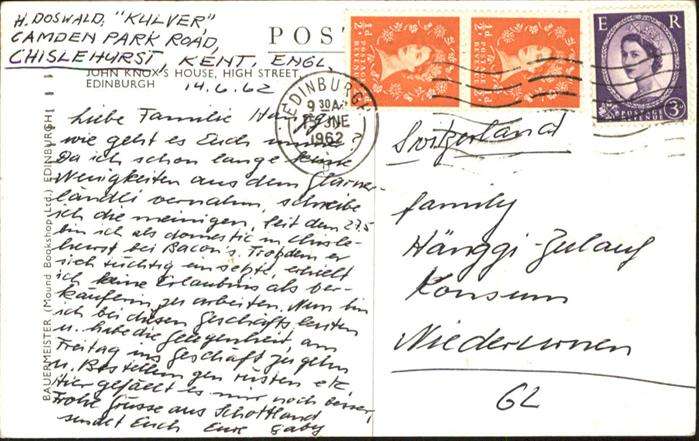 H. DOSWALD, "KULVER",
CAMDEN PARK ROAD,
CHISLEHURST, KENT, ENGL.
POS
JOHN KNOX'S HOUSE, HIGH STREET,
EDINBURGH
14.6.62
BAUERMEISTER (Mound Bookshop Ltd.) EDINBURGH
Liebe Familie
wie geht es Euch
Da ich schon lange keine
Neuigkeiten aus dem Glarner-
ländli vernahm, schreibe
ich die meinigen. Seit dem 27.5
bin ich als domestic in Chisle-
hurst bei Bacon's. Trotzdem er
sich tüchtig einsetzte, erhielt
ich keine Erlaubnis als Ver-
käuferin zu arbeiten. Nun bin
ich bei diesen Geschäftsleuten
u. habe die Gelegenheit, am
Freitag ins Geschäft zu gehn
u. Bestellungen rüsten etc.
Hier gefällt es mir noch besser,
Frohe Grüsse aus Schottland
sendet Euch Eure Gaby
EDINBURGH
9 30 AM
JNE
1962
½d
½d
POSTAGE
REVENUE
E R
POSTAGE
REVENUE
3d
Switzerland
family
Hänggi-Zulauf
Konsum
Niederurnen
GL